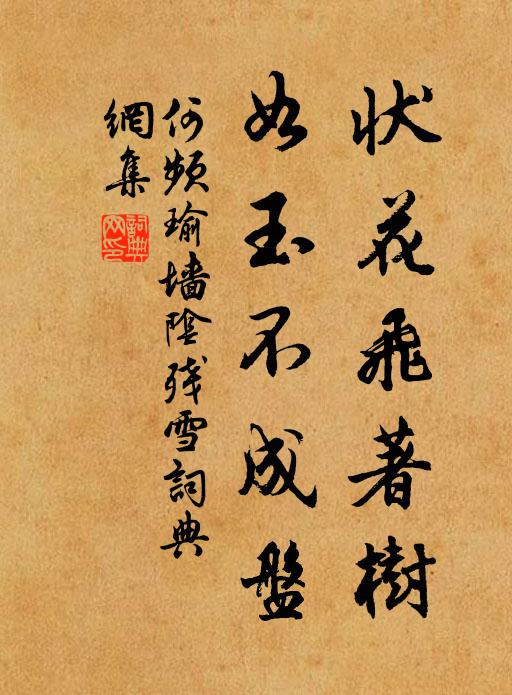 状花飛著樹
如玉不成盤
何頻瑜墙陰残雪詞典
網集
詞典